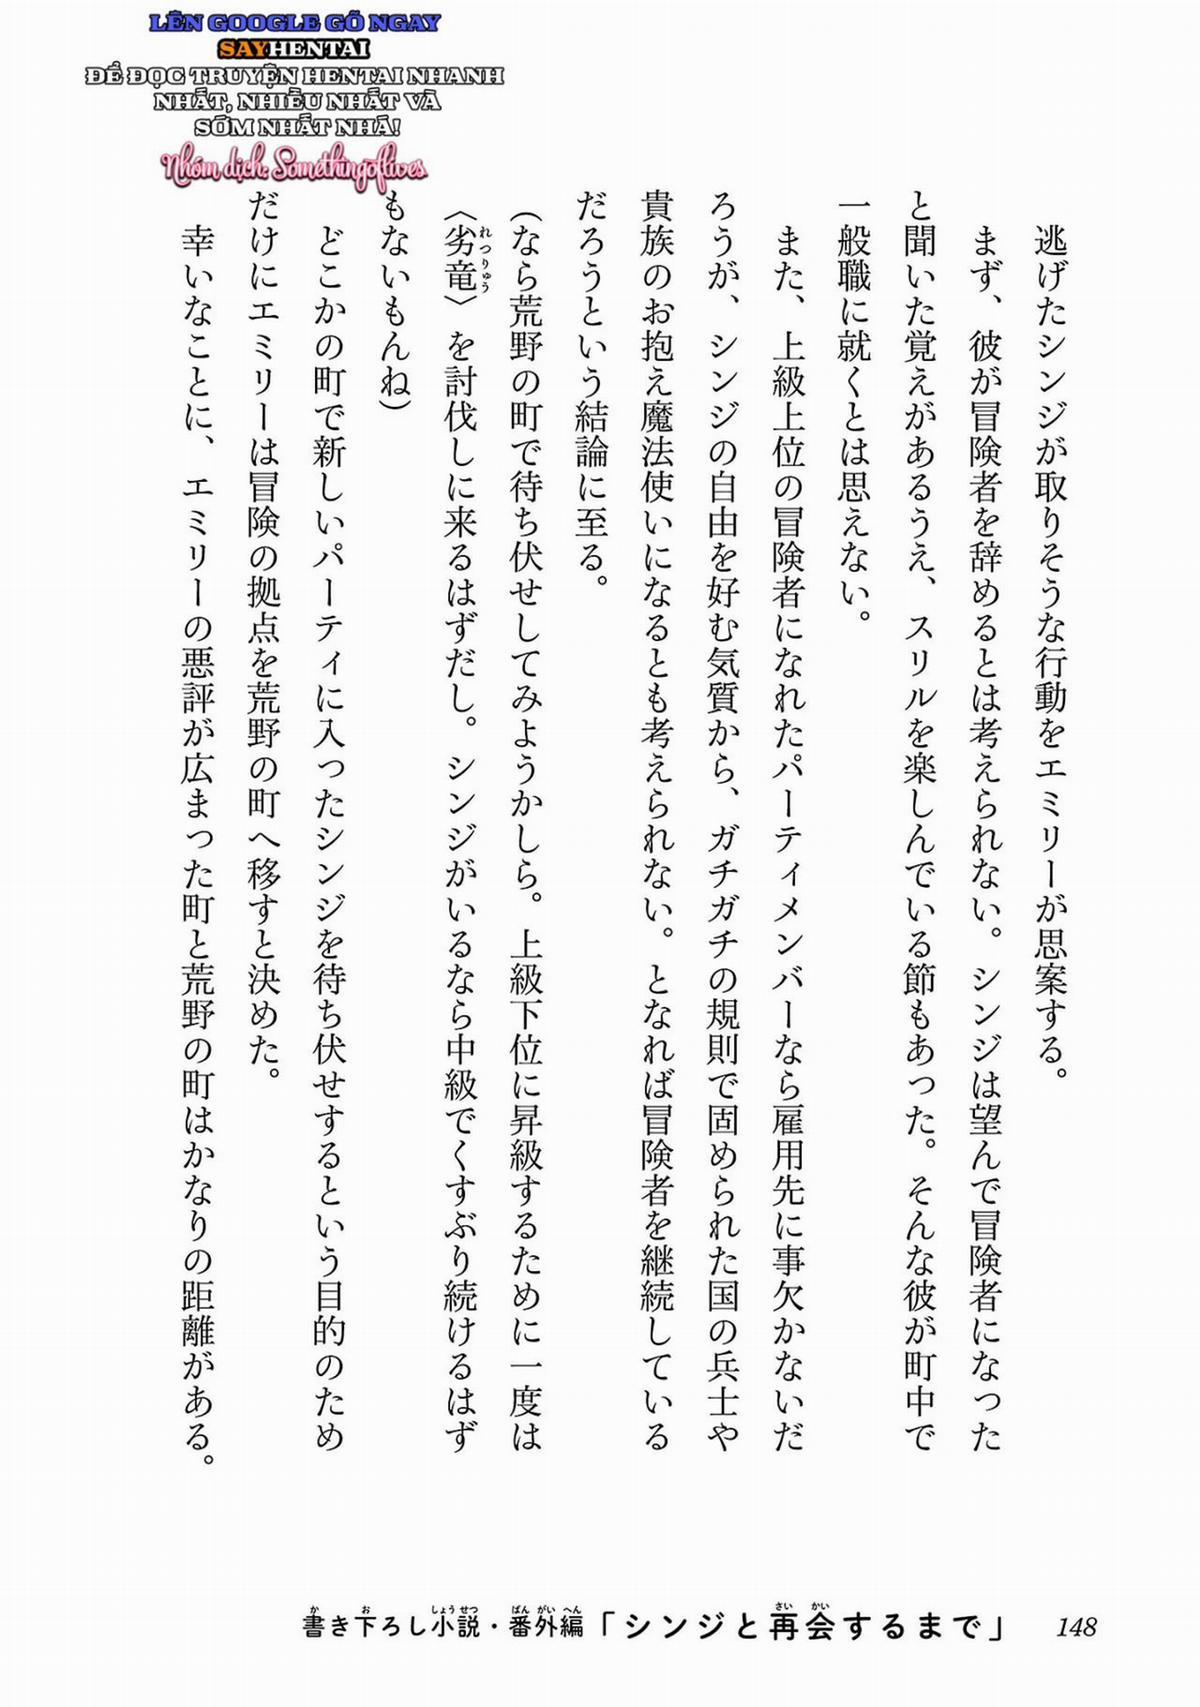 LÊN GOOGLE GÕ NGAY
SAYHENTAI
ĐỂ ĐỌC TRUYỆN HENTAI NHANH
NHẤT, NHIỀU NHẤT VÀ
SỚM NHẤT NHÁ!
Nhóm dịch: Somethingoflives
逃げたシンジが取りそうな行動をエミリーが思案する。
まず、彼が冒険者を辞めるとは考えられない。シンジは望んで冒険者になった
と聞いた覚えがあるうえ、スリルを楽しんでいる節もあった。そんな彼が町中で
一般職に就くとは思えない。
また、上級上位の冒険者になれたパーティメンバーなら雇用先に事欠かないだ
ろうが、シンジの自由を好む気質から、ガチガチの規則で固められた国の兵士や
貴族のお抱え魔法使いになるとも考えられない。となれば冒険者を継続している
だろうという結論に至る。
(なら荒野の町で待ち伏せしてみようかしら。上級下位に昇級するために一度は
〈劣竜〉を討伐しに来るはずだし。シンジがいるなら中級でくすぶり続けるはず
れつりゅう
もないもんね)
どこかの町で新しいパーティに入ったシンジを待ち伏せするという目的のため
だけにエミリーは冒険の拠点を荒野の町へ移すと決めた。
幸いなことに、エミリーの悪評が広まった町と荒野の町はかなりの距離がある。
書き下ろし小説・番外編「シンジと再会するまで」
か お しょうせつ ばんがいへん さいかい
148